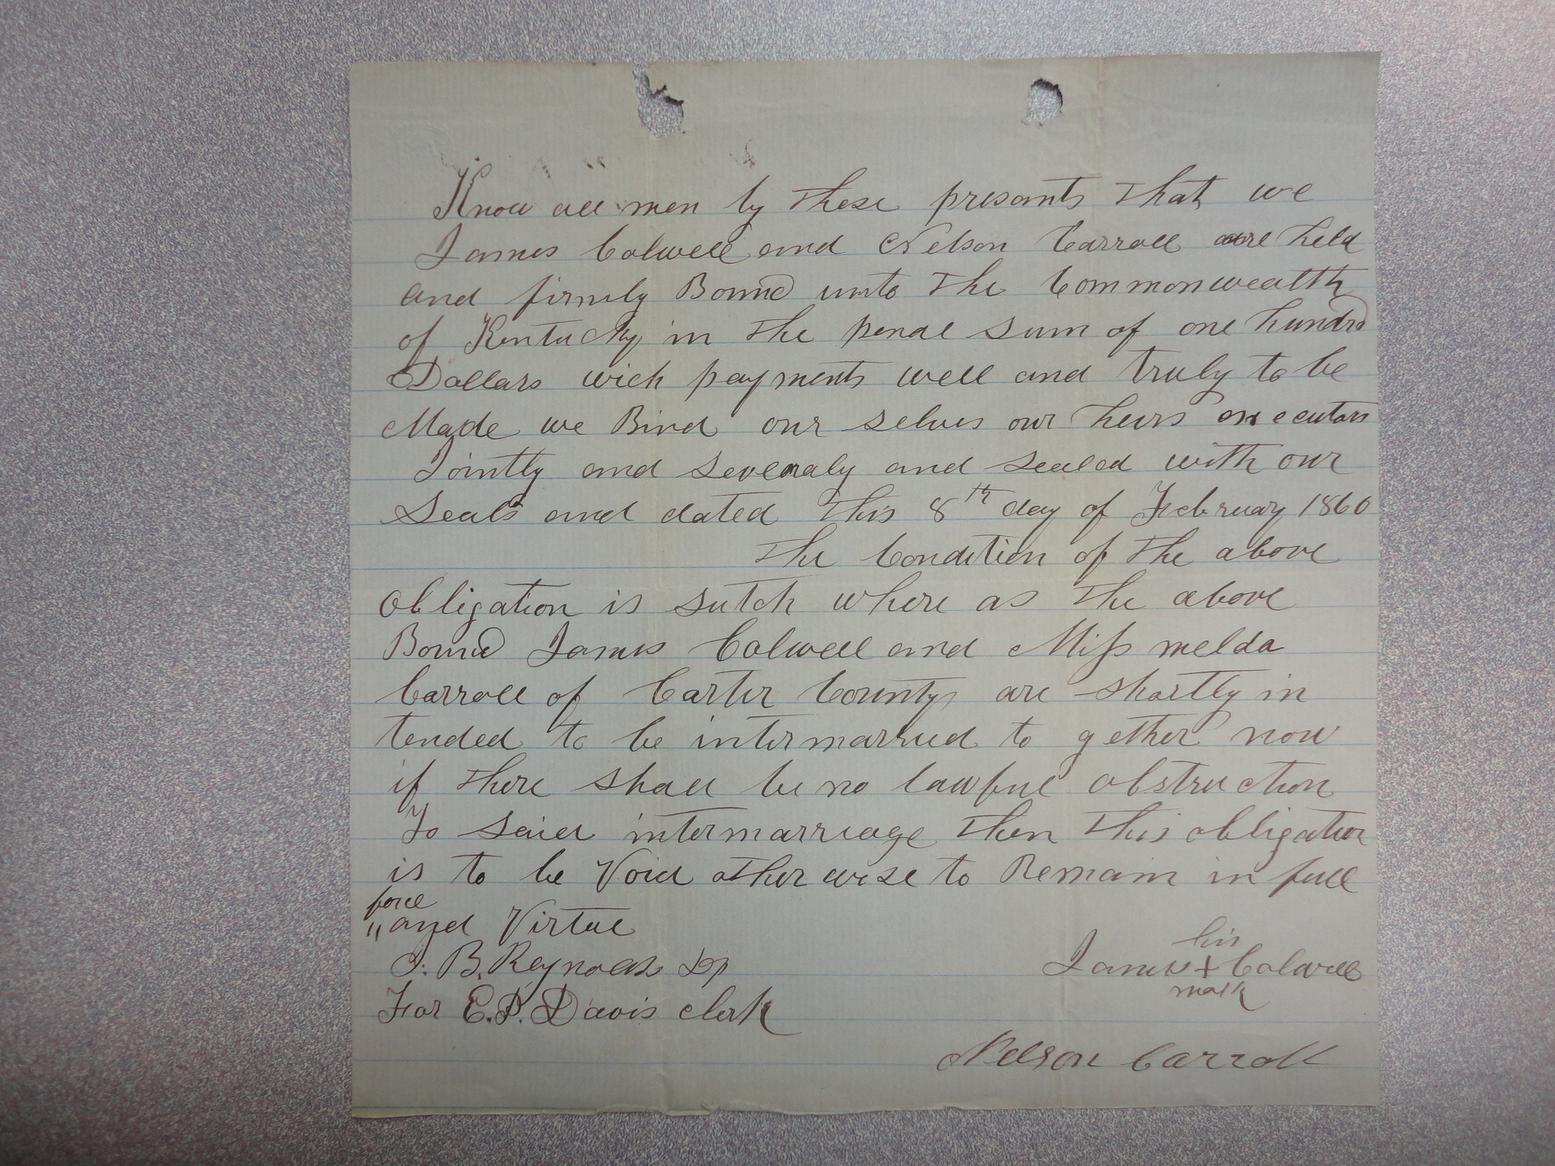 Know all men by these presants that we
James Colwell and Nelson Carroll are held
and firmly Bound unto the Commonwealth
of Kentucky in the penal sum of one hundrd
Dollars wich payments well and truly to be
Made we Bind our selves our heirs executors
Jointly and severaly and sealed with our
Seals and dated this 8th day of February 1860
The Condition of the above
obligation is sutch where as the above
Bound James Colwell and Miss melda
Carroll of Carter County are shortly in
tended to be intermarried to gether now
if there shall be no lawful obstruction
To said intermarriage then this obligation
is to be Void other wise to Remain in full
force
" and Virtue
J. B. Reynolds Dp
For E.P. Davis clerk
his
James + Colwell
mark
Nelson Carroll